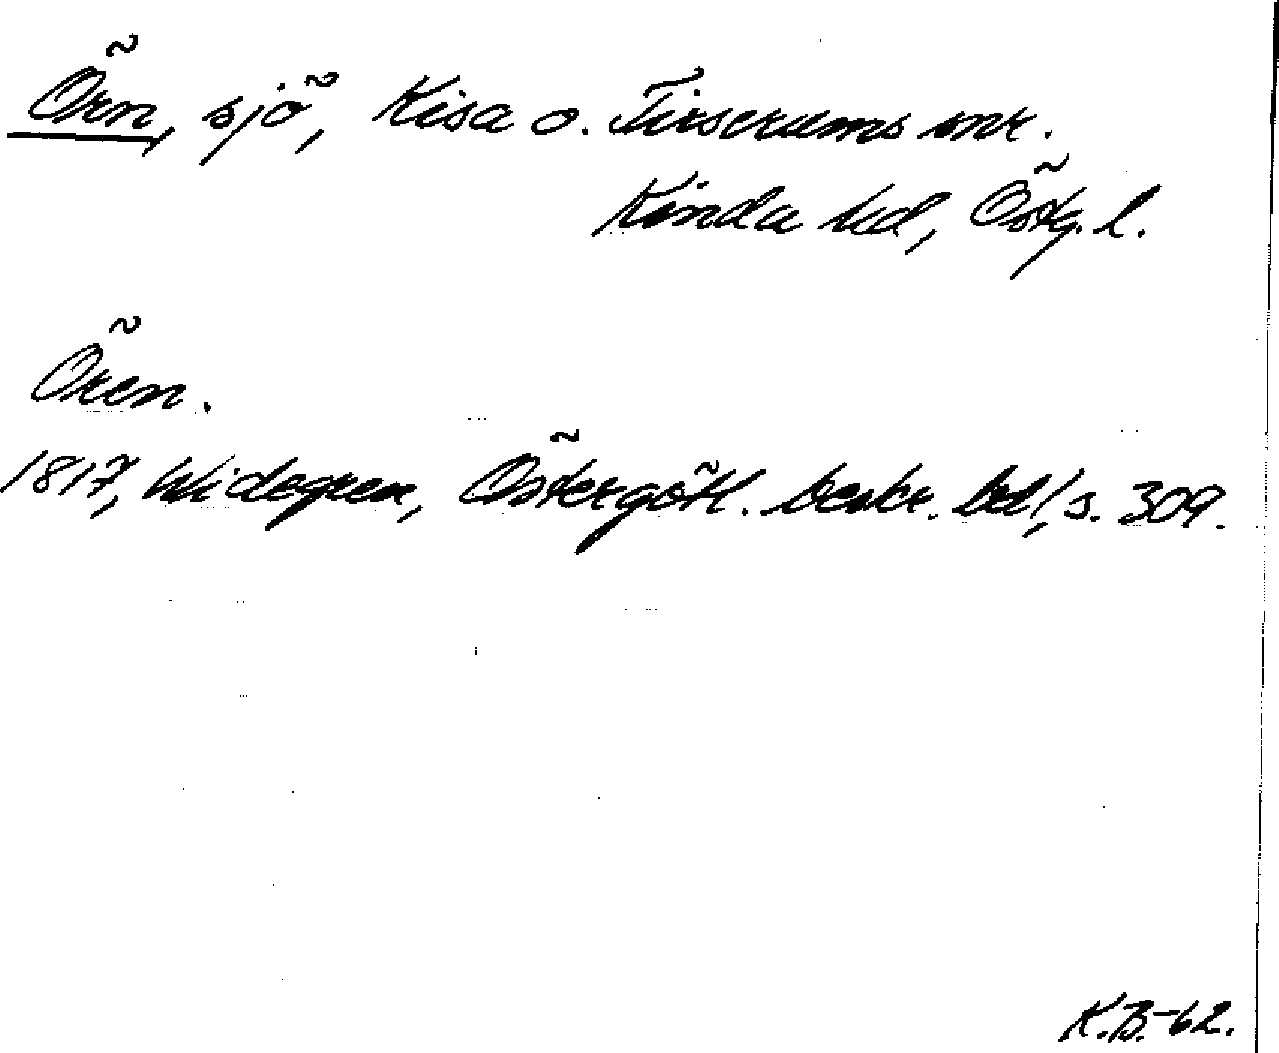 Örn, sjö, Kisa o. Tirserums snr.
Kinda hd, Östg. l.
Ören.
1817, Widegren, Östergötl. beskr. bd 1, s. 309.
K.B.-62.